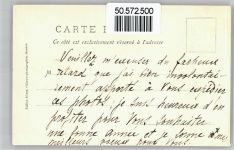 50.572.500
CARTE
Ce côté est exclusivement réservé à l'adresse
Veuillez m'excuser du fâcheux
retard que j'ai bien involontai-
rement apporté à vous expédier
ces photos. je suis heureux d'en
profiter pour vous souhaiter
une bonne année et je forme
meilleurs vœux pour vous.